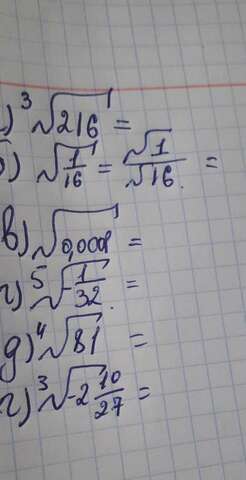 ) ³√216 =
б) √1/16 = √1/√16 =
в) √0,0001 =
г) ⁵√-1/32 =
д) ⁴√81 =
г) ³√-2 10/27 =